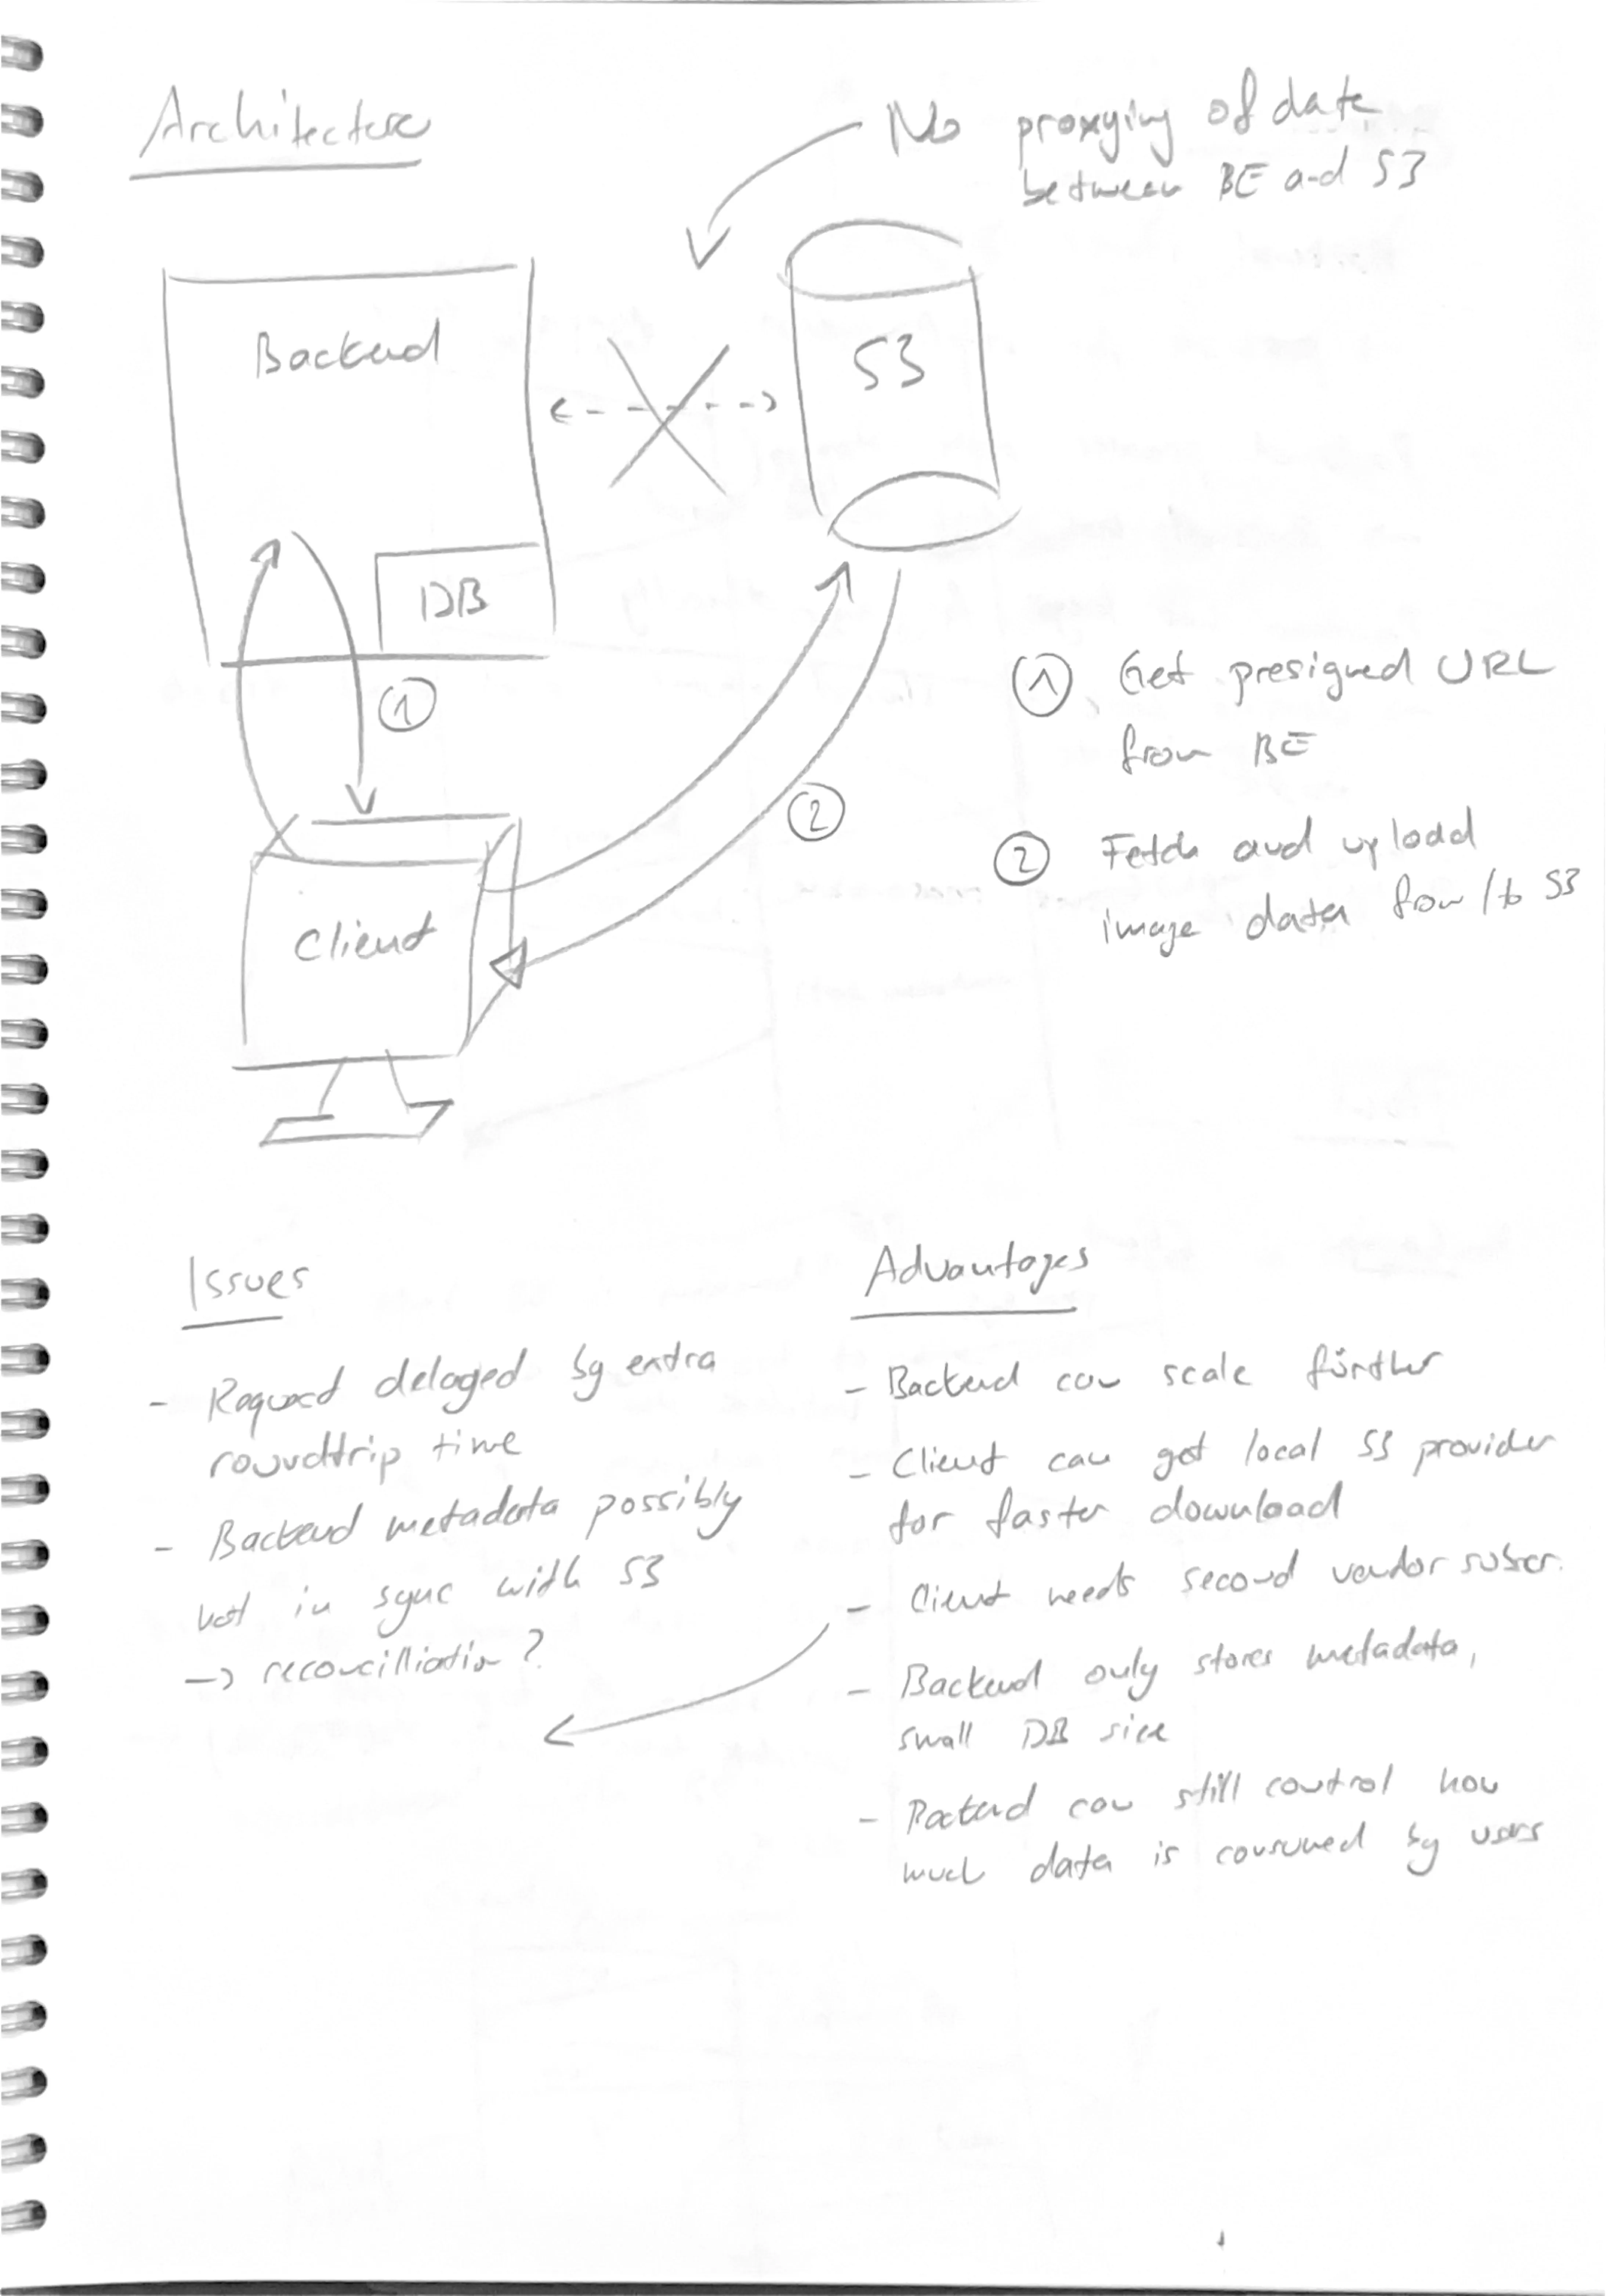 Architecture
No proxying of data
between BE and S3
Backend
S3
DB
1
1 Get presigned URL
from BE
2
2 Fetch and upload
image data from / to S3
Client
Issues
- Request delayed by extra
roundtrip time
- Backend metadata possibly
not in sync with S3
-> reconcilliation?
Advantages
- Backend can scale further
- Client can get local S3 provider
for faster download
- Client needs second vendor subscr.
- Backend only stores metadata,
small DB size
- Backend can still control how
much data is consumed by users